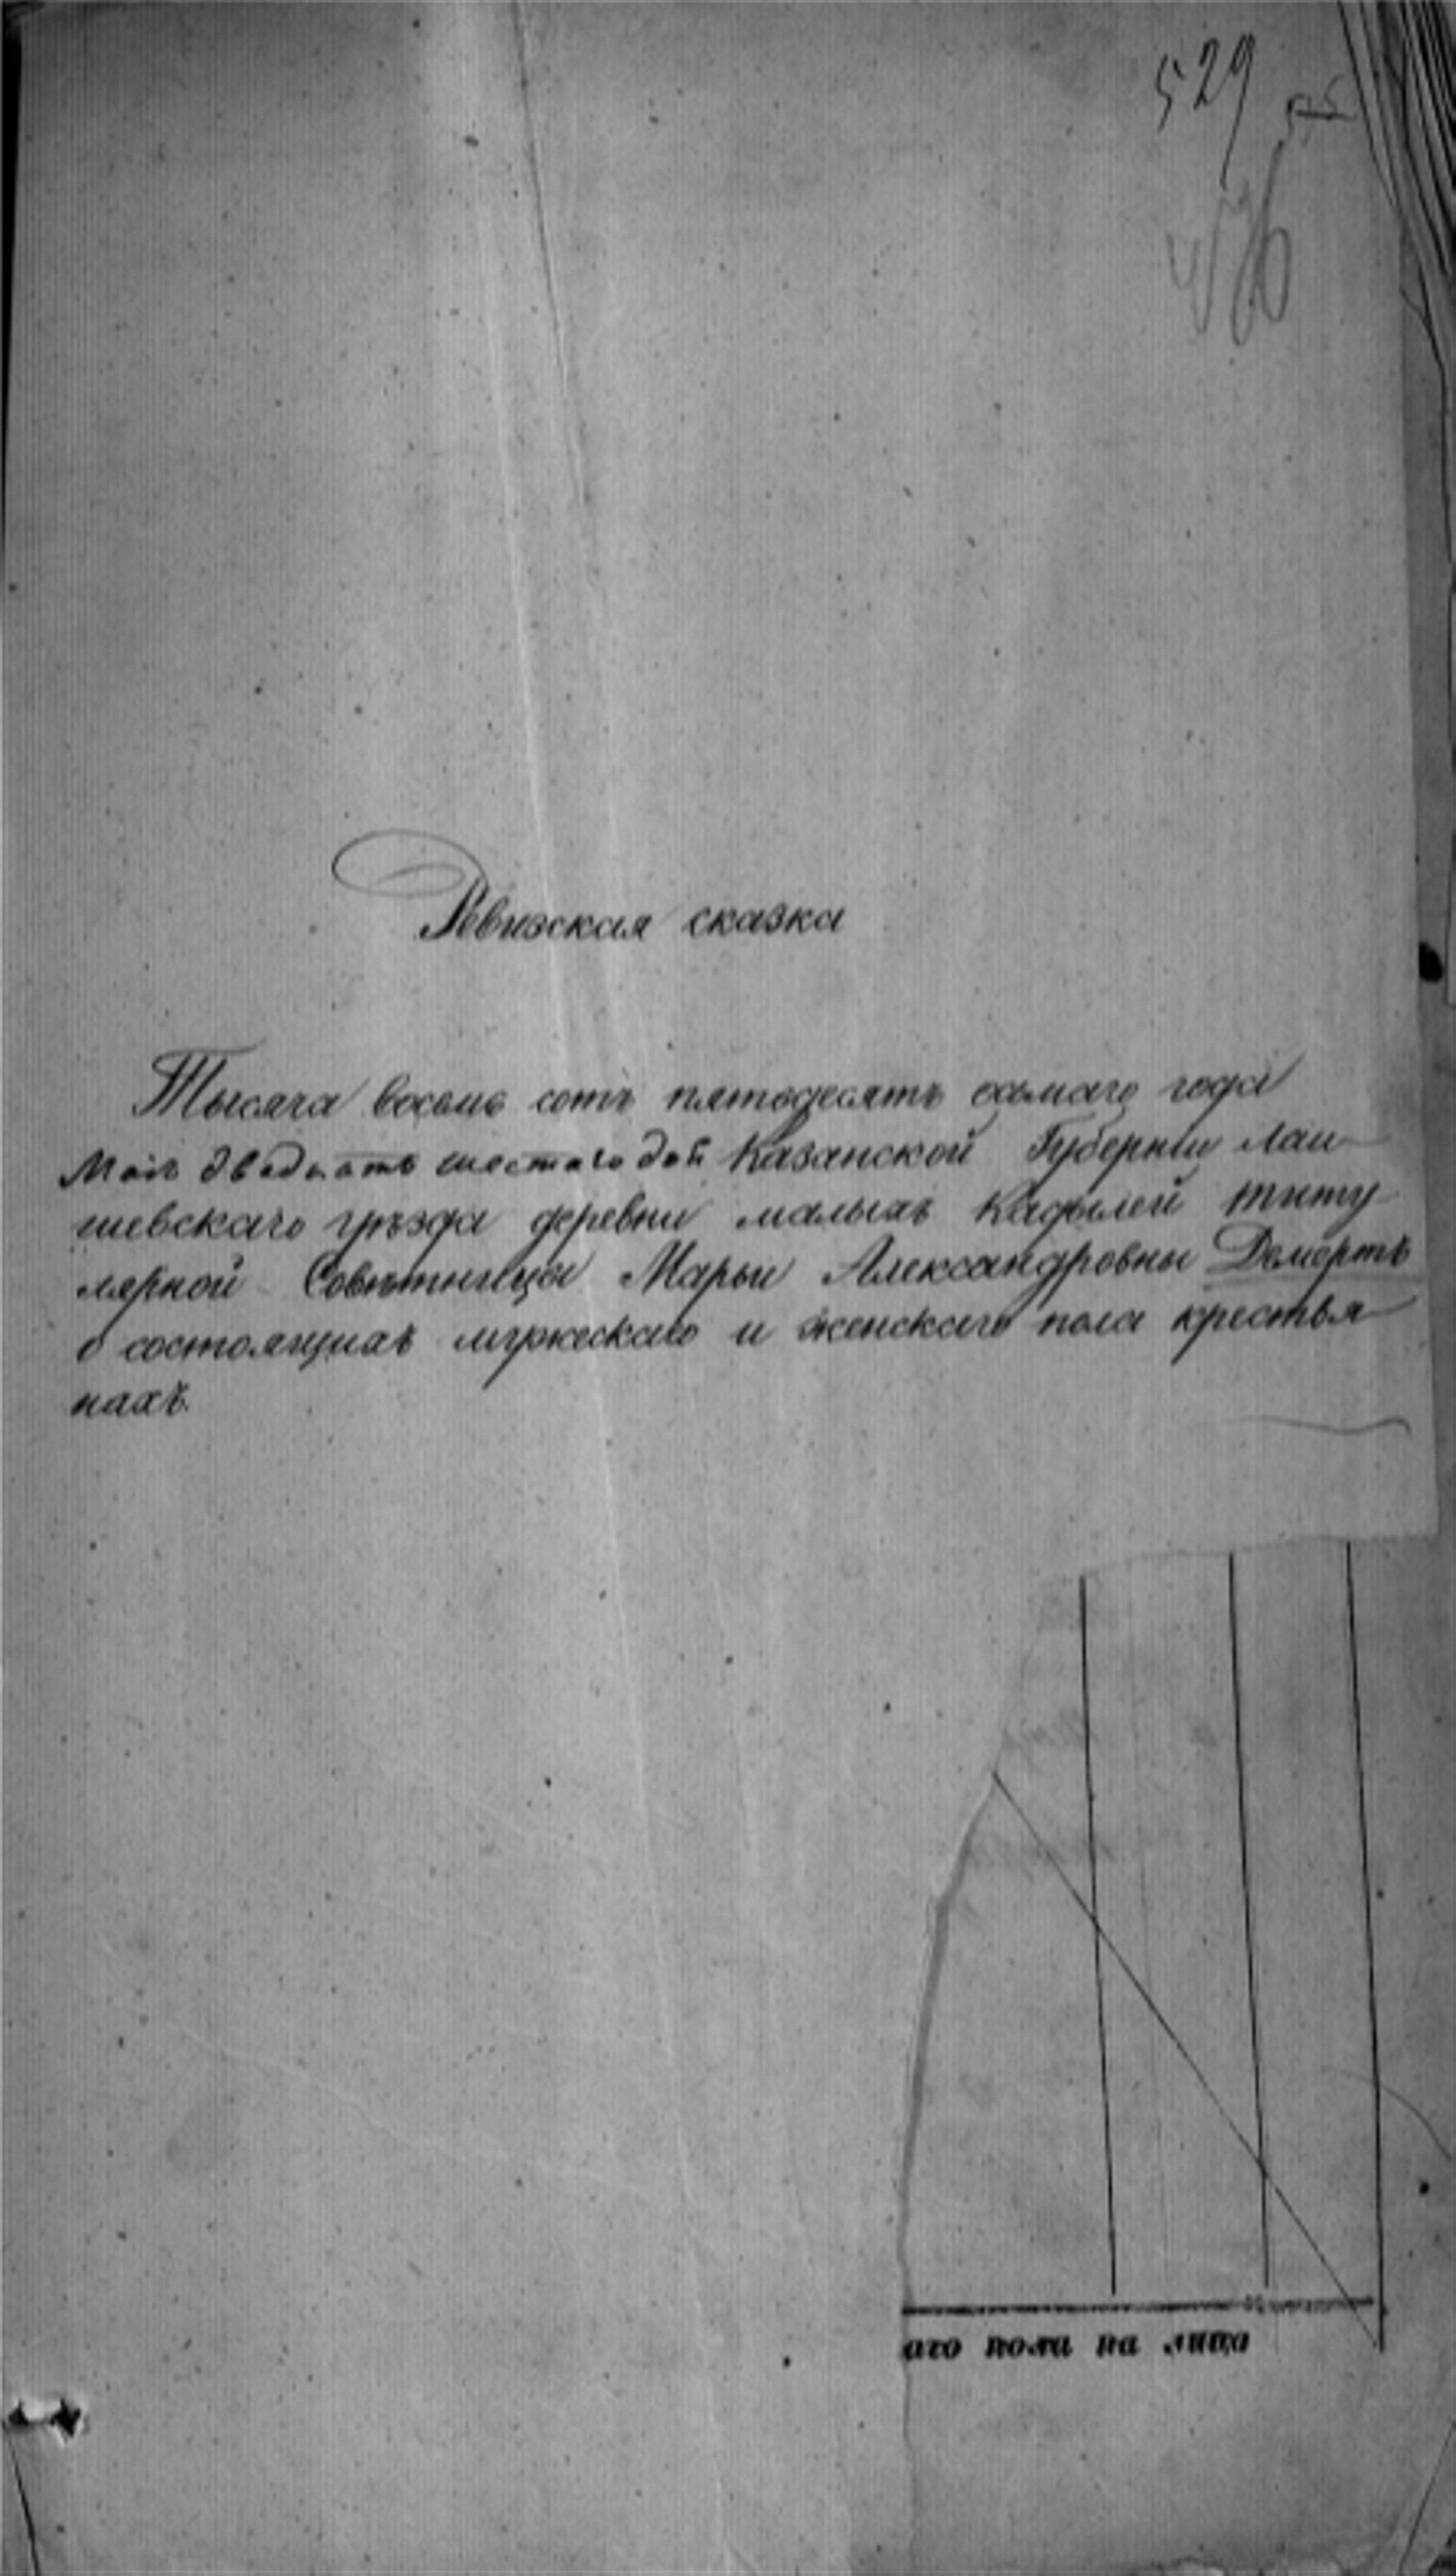 529
Ревизская сказка
Тысяча восемь сотъ пятьдесятъ осьмаго года
Мая двадцать шестаго дня Казанской Губернiи Лаи
шевскаго уѣзда деревни малыхъ Кадылей титу
лярной Совѣтницы Марьи Александровны Демертъ
о состоящихъ мужескаго и женскаго пола крестья
нахъ.
аго пола на лицо